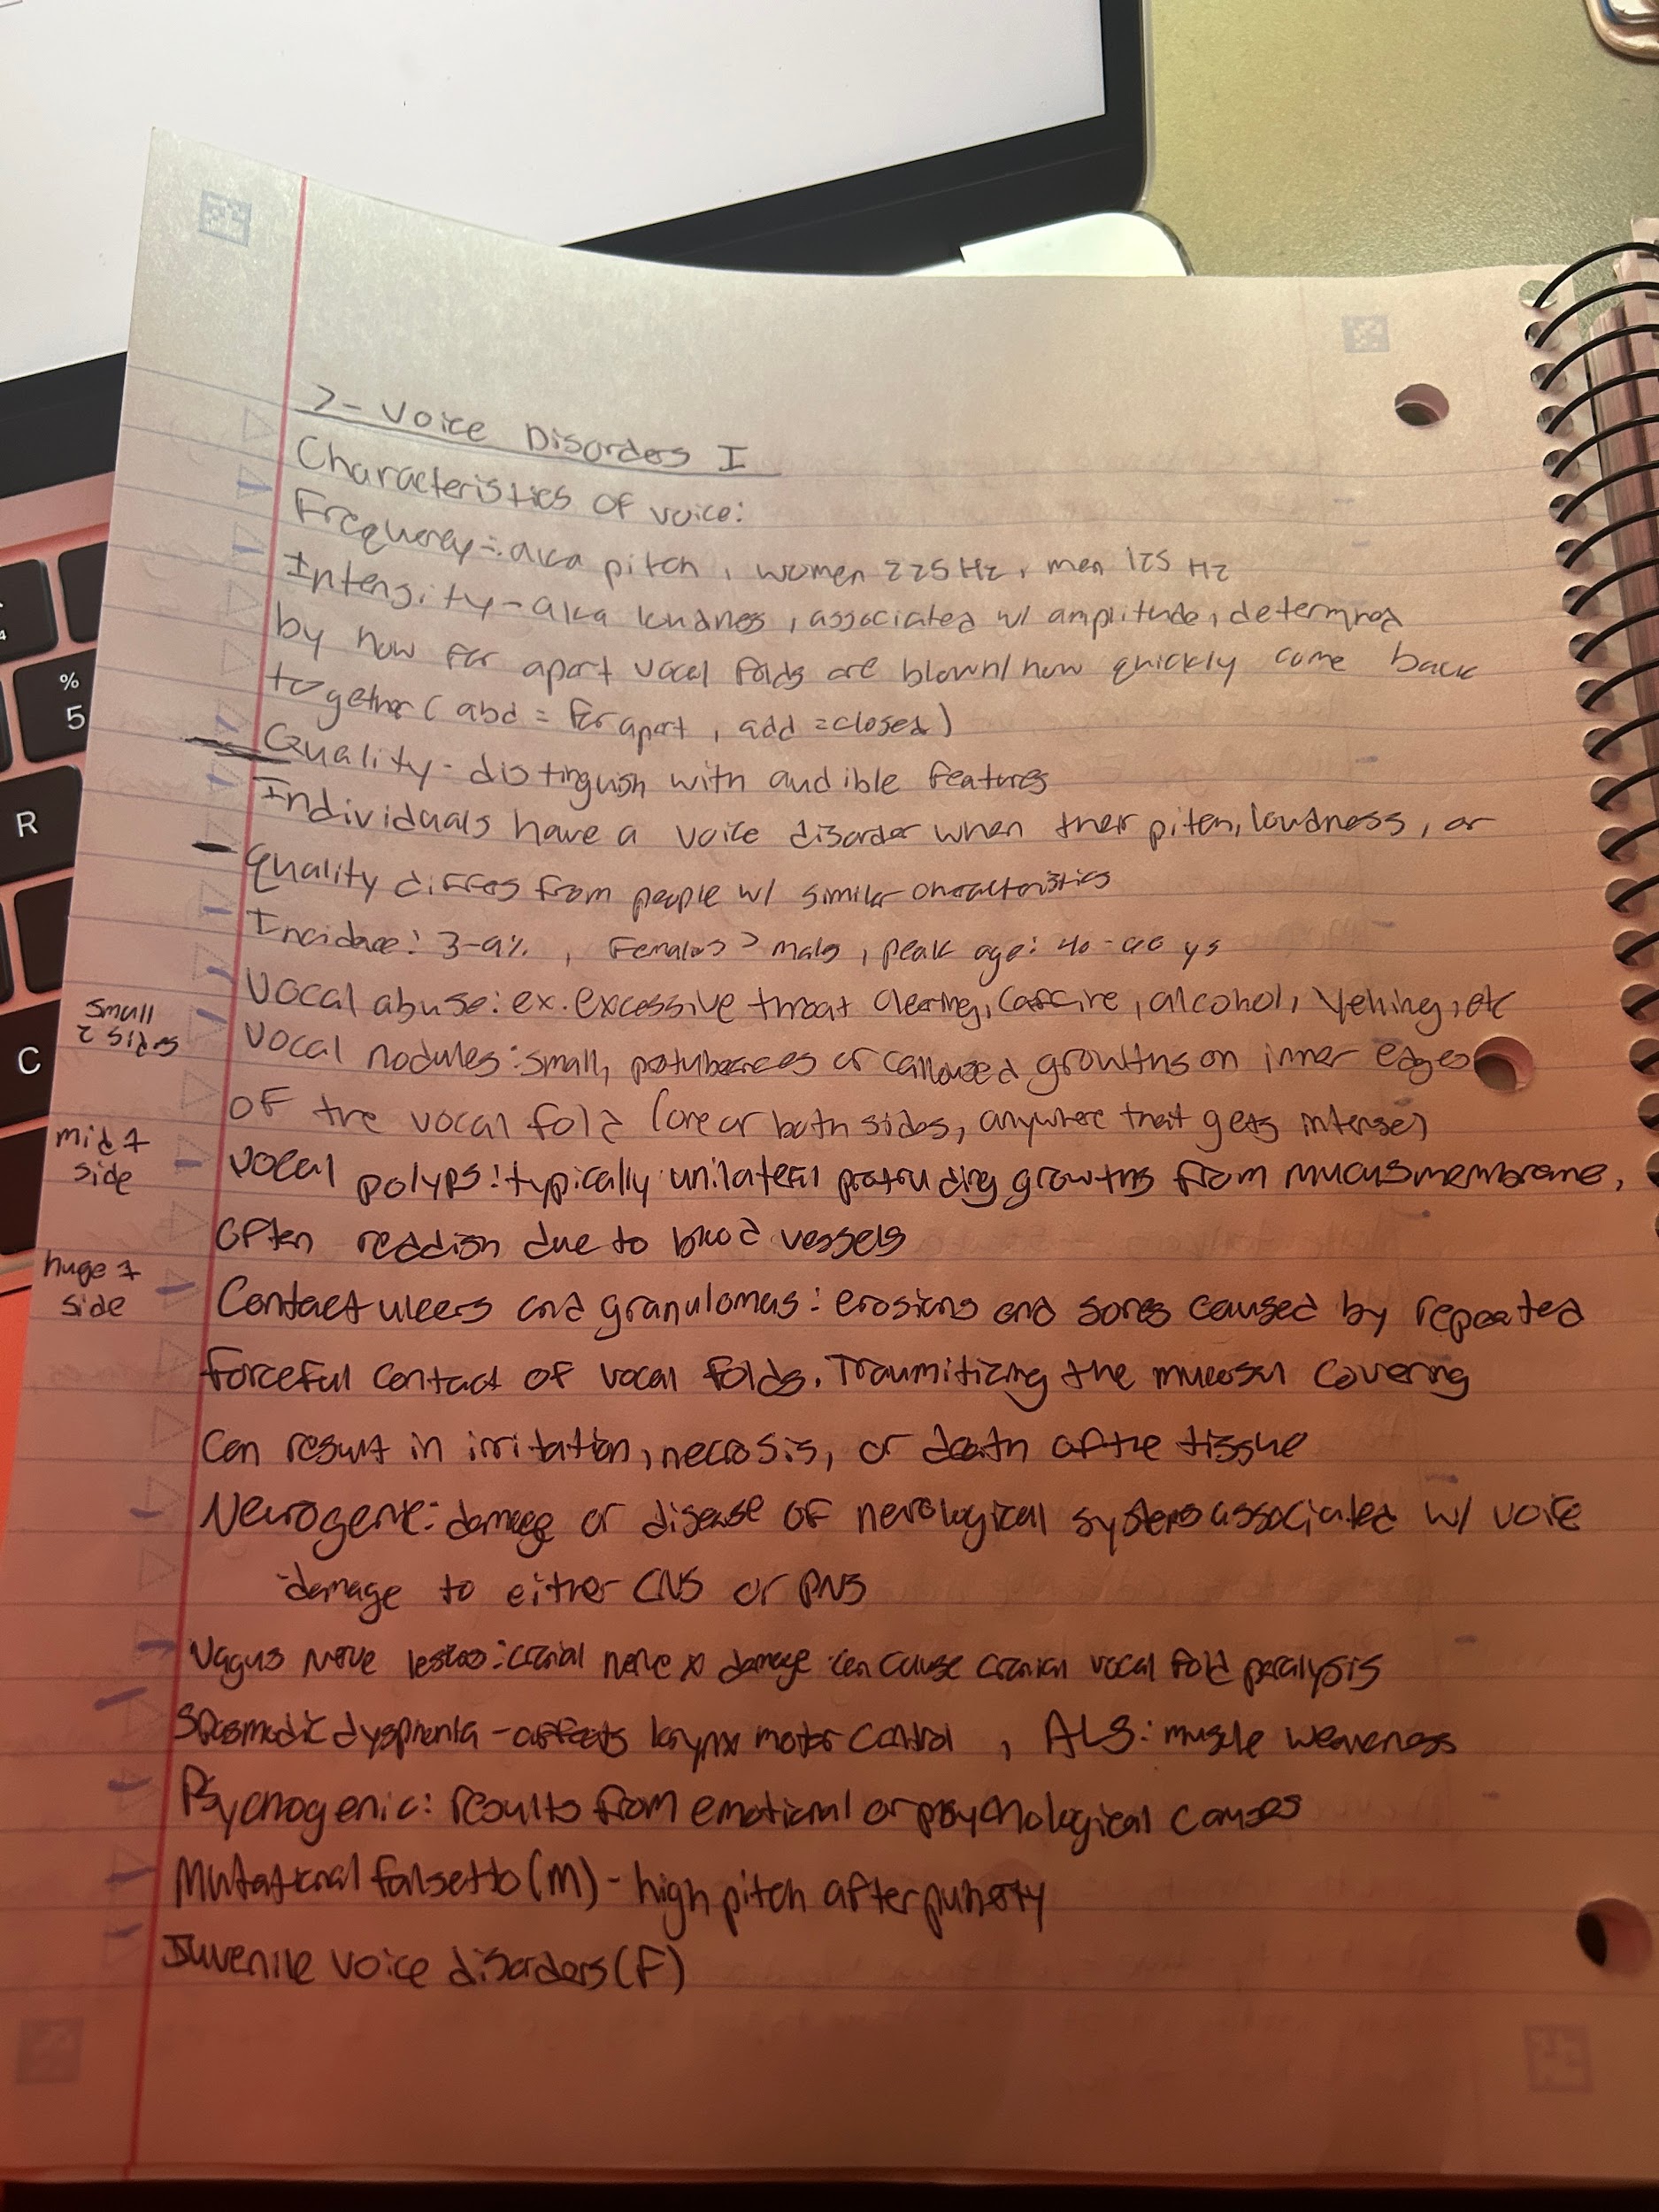 2- Voice Disorders I
Characteristics of voice:
Frequency- aka pitch, women 225 Hz, men 125 Hz
Intensity - aka loudness, associated w/ amplitude, determined
by how far apart vocal folds are blown/how quickly come back
together (abd = far apart, add = closed)
Quality - distinguish with audible features
Individuals have a voice disorder when their pitch, loudness, or
quality differs from people w/ similar characteristics
Incidence: 3-9%, Females > males, peak age: 40- ys
Vocal abuse: ex. excessive throat clearing, caffeine, alcohol, yelling, etc
small
2 sides
Vocal nodules: small, protuberances or calloused growths on inner edges
of the vocal fold (one or both sides, anywhere that gets intense)
mid 1
side
Vocal polyps: typically unilateral protruding growths from mucus membrane,
often reddish due to blood vessels
huge 1
side
Contact ulcers and granulomas: erosions and sores caused by repeated
forceful contact of vocal folds. Traumitizing the mucosal covering
can result in irritation, necrosis, or death of the tissue
Neurogenic: damage or disease of nerological systems associated w/ voice
-damage to either CNS or PNS
Vagus nerve lesions: cranial nerve X damage can cause cranial vocal fold paralysis
Spasmodic dysphonia - affects larynx motor control, ALS: muscle weakness
Psychogenic: results from emotional or psychological causes
Mutational falsetto (M) - high pitch after puberty
Juvenile voice disorders (F)
%
5
R
C